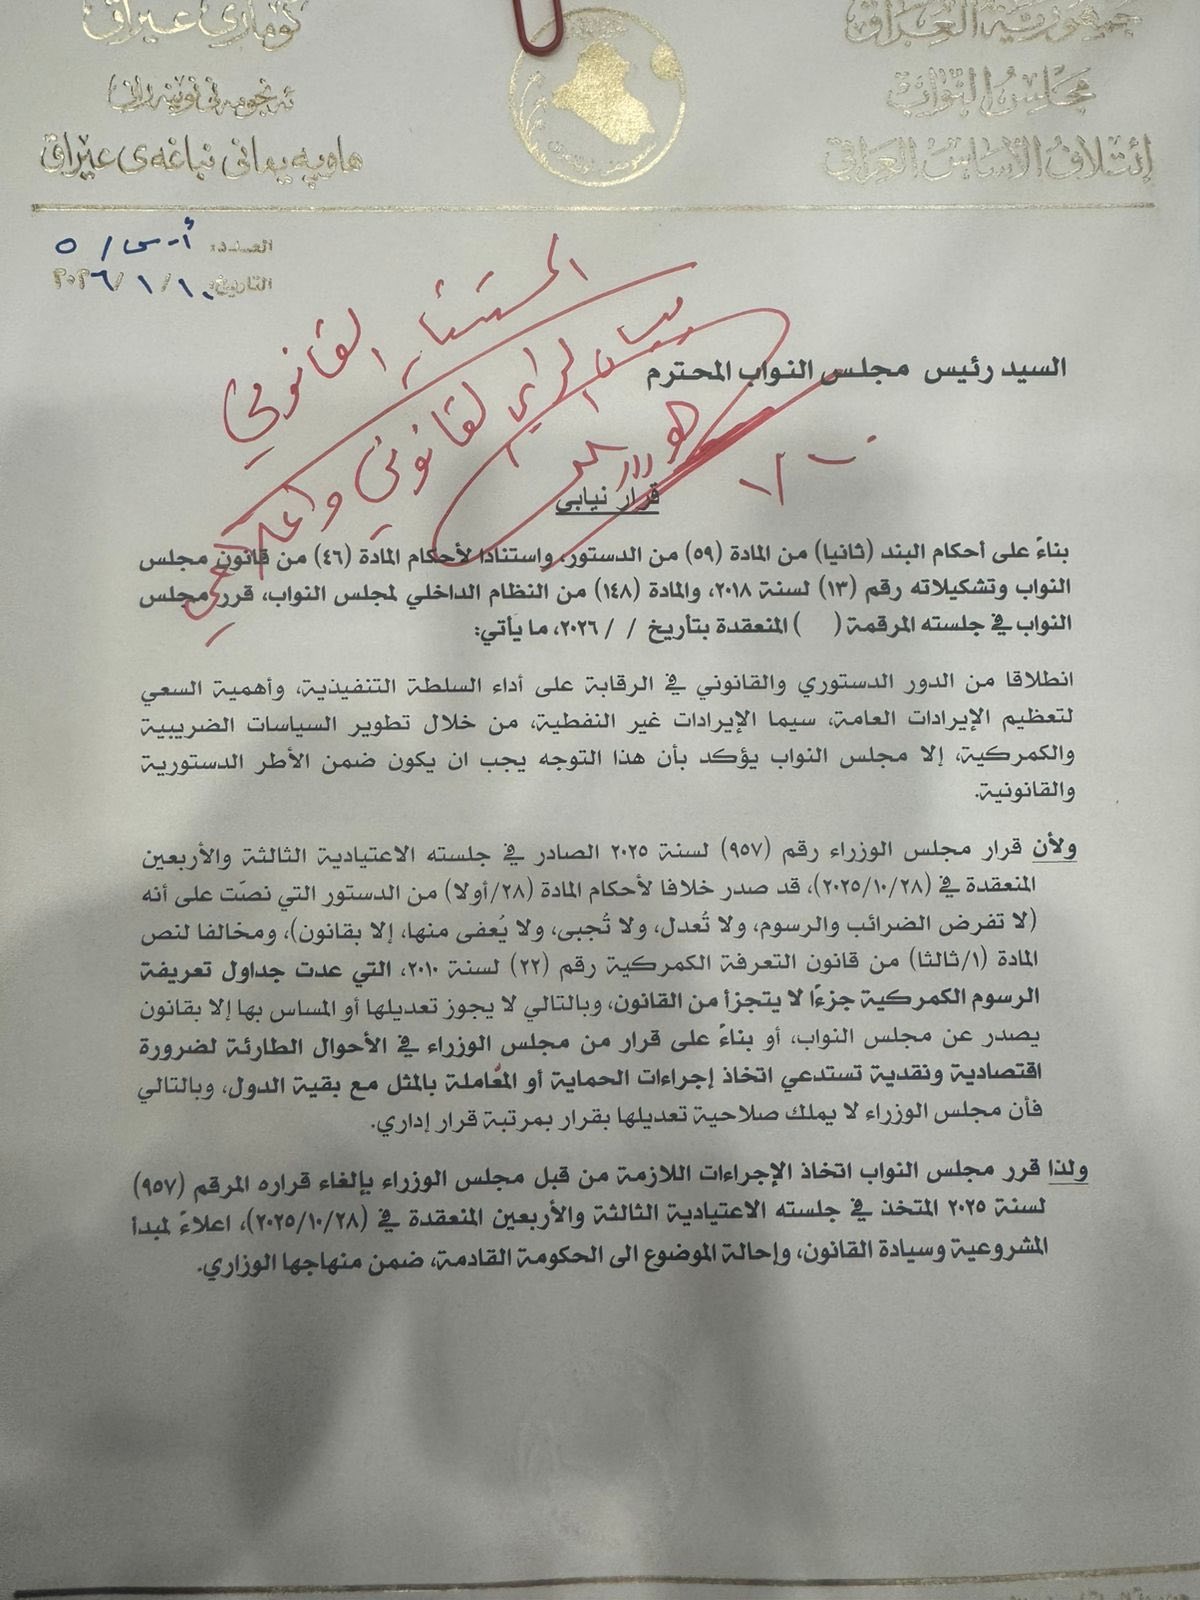 جمهورية العراق
مجلس النواب
إئتلاف الأساس العراقي
كۆماری عێراق
ئەنجومەنی نوێنەرانی
هاوپەیمانی نباغەی عێراق
العدد: أ.س/ ٥
التاريخ: ١٠/ ١ /٢٠٢٦
السيد رئيس مجلس النواب المحترم
القانوني
القانوني
١٠/١
قرار نيابي
بناءً على أحكام البند (ثانيا) من المادة (٥٩) من الدستور، واستنادا لأحكام المادة (٤٦) من قانون مجلس
النواب وتشكيلاته رقم (١٣) لسنة ٢٠١٨، والمادة (١٤٨) من النظام الداخلي لمجلس النواب، قرر مجلس
النواب في جلسته المرقمة (    ) المنعقدة بتأريخ  /  / ٢٠٢٦، ما يأتي:
انطلاقا من الدور الدستوري والقانوني في الرقابة على أداء السلطة التنفيذية، وأهمية السعي
لتعظيم الإيرادات العامة، سيما الإيرادات غير النفطية، من خلال تطوير السياسات الضريبية
والكمركية، إلا مجلس النواب يؤكد بأن هذا التوجه يجب ان يكون ضمن الأطر الدستورية
والقانونية.
ولأن قرار مجلس الوزراء رقم (٩٥٧) لسنة ٢٠٢٥ الصادر في جلسته الاعتيادية الثالثة والأربعين
المنعقدة في (٢٠٢٥/١٠/٢٨)، قد صدر خلافا لأحكام المادة (٢٨/أولا) من الدستور التي نصّت على أنه
(لا تفرض الضرائب والرسوم، ولا تُعدل، ولا تُجبى، ولا يُعفى منها، إلا بقانون)، ومخالفا لنص
المادة (١/ثالثا) من قانون التعرفة الكمركية رقم (٢٢) لسنة ٢٠١٠، التي عدت جداول تعريفة
الرسوم الكمركية جزءًا لا يتجزأ من القانون، وبالتالي لا يجوز تعديلها أو المساس بها إلا بقانون
يصدر عن مجلس النواب، أو بناءً على قرار من مجلس الوزراء في الأحوال الطارئة لضرورة
اقتصادية ونقدية تستدعي اتخاذ إجراءات الحماية أو المُعاملة بالمثل مع بقية الدول، وبالتالي
فأن مجلس الوزراء لا يملك صلاحية تعديلها بقرار بمرتبة قرار إداري.
ولذا قرر مجلس النواب اتخاذ الإجراءات اللازمة من قبل مجلس الوزراء بإلغاء قراره المرقم (٩٥٧)
لسنة ٢٠٢٥ المتخذ في جلسته الاعتيادية الثالثة والأربعين المنعقدة في (٢٠٢٥/١٠/٢٨)، اعلاءً لمبدأ
المشروعية وسيادة القانون، وإحالة الموضوع الى الحكومة القادمة، ضمن منهاجها الوزاري.